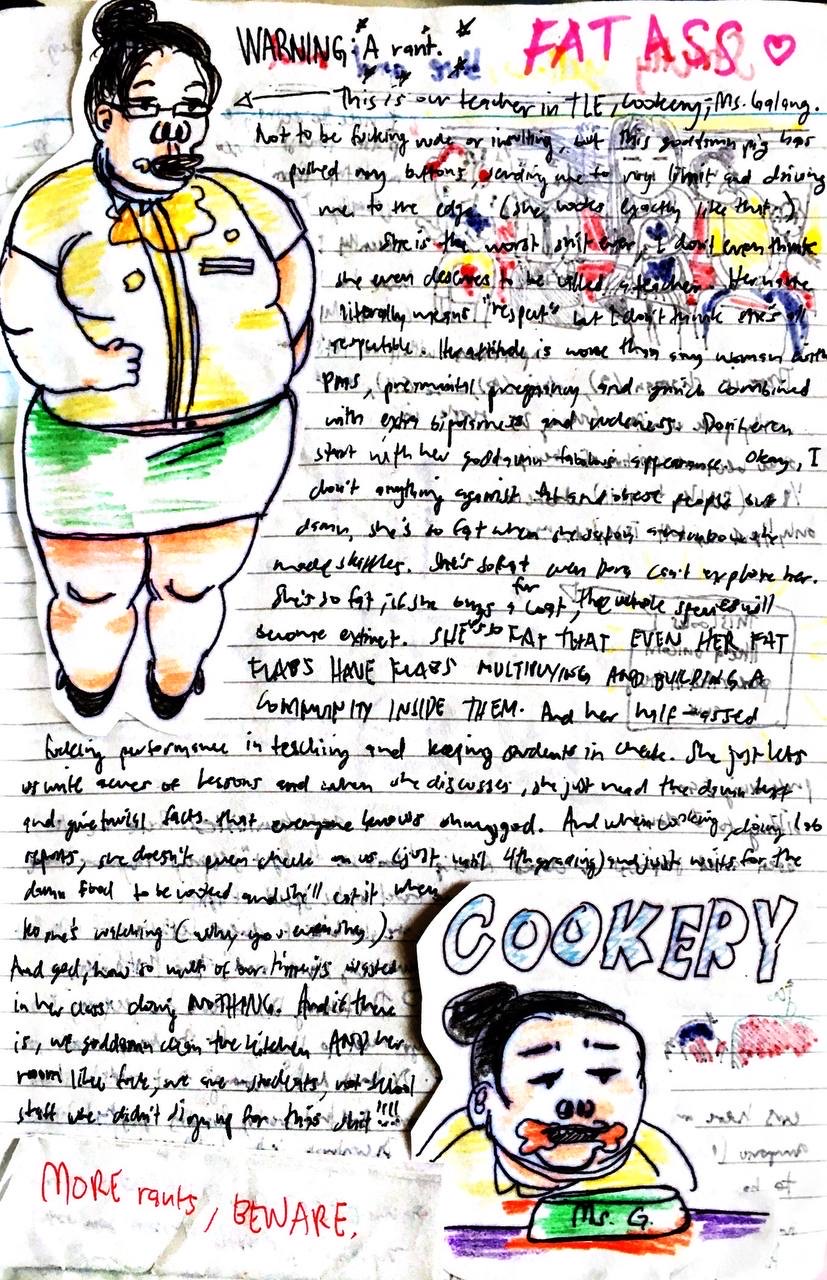 WARNING: A rant.
FAT ASS ♡
This is our teacher in TLE, Cookery; Ms. Galang.
Not to be fucking rude or insulting, but this goddamn pig has
pushed my buttons, sending me to my limit and driving
me to the edge. (she looks exactly like that.)
She is the worst shit ever, I don't even think
she even deserves to be called a teacher. Her name
literally means "respect" but I don't think she's all
respectable. Her attitude is worse than any woman with
PMS, premarital pregnancy and grinch combined
with extra bipolarness and rudeness. Don't even
start with her goddamn fabulous appearance. Okay, I
don't anything against fat and obese people but
damn, she's so fat when she
made skittles. She's so fat even Dora can't explore her.
She's so fat, if she buys a fur coat, the whole species will
become extinct. SHE's SO FAT THAT EVEN HER FAT
FLABS HAVE FLABS MULTIPLYING AND BUILDING A
COMMUNITY INSIDE THEM. And her half-assed
fucking performance in teaching and keeping students in check. She just lets
us write acres of lessons and when she discusses, she just read the damn text
and give trivial facts that everyone knows
And when cooking, doing lab
reports, she doesn't even check on us (just until 4th grading) and just waits for the
damn food to be cooked and she'll eat it when
no one's watching (why, you even shy).
And god, how so much of our time is wasted
in her class doing NOTHING. And if there
is, we goddamn clean the kitchen AND her
room like fuck, we are students, not school
staff we didn't sign up for this shit!!!!
COOKERY
Ms. G.
MORE rants, BEWARE.